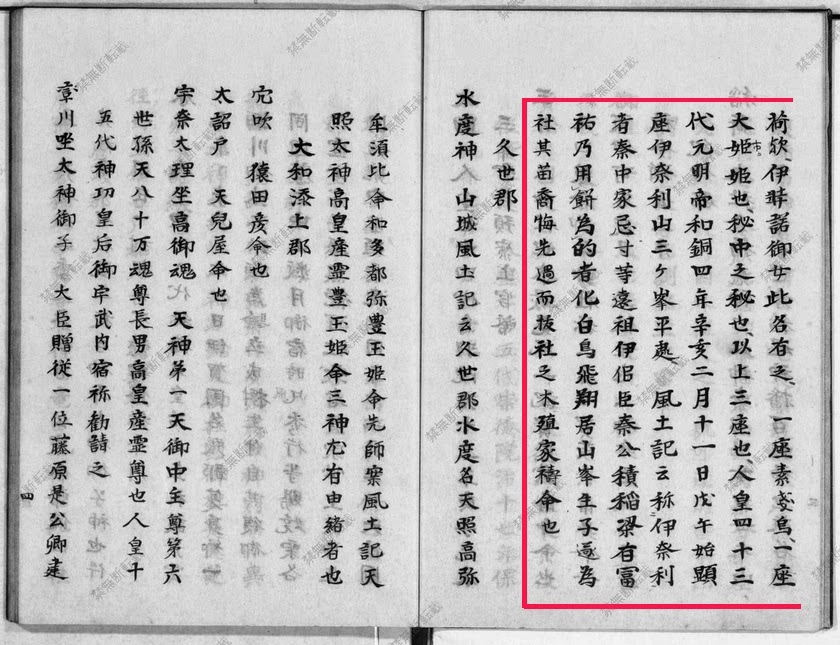 荷欤伊弉諾御女此名有之一座素戔烏一座
大市姫姫也秘中之秘也以上三座也人皇四十三
代元明帝和銅四年辛亥二月十一日戊午始顕
座伊奈利山三ヶ峯平処 風土記云称伊奈利
者秦中家忌寸等遠祖伊侶臣秦公積稲梁有冨
祐乃用餅為的者化白鳥飛翔居山峯生子遂為
社其苗裔悔先過而抜社之木殖家禱命也
久世郡
水度神 山城風土記云久世郡水度名天照高弥
牟須比命和多都弥豊玉姫命先師案風土記天
照太神高皇産霊豊玉姫命三神尤有由緒者也
大和添上郡
穴吹 猿田彦命也
太詔戸 天児屋命也
宇奈太理坐高御魂 天神第一天御中主尊第六
世孫天八十万魂尊長男高皇産霊尊也人皇十
五代神功皇后御宇武内宿祢勧請之
率川坐太神御子 大臣贈従一位藤原是公卿建
四
禁無断転載